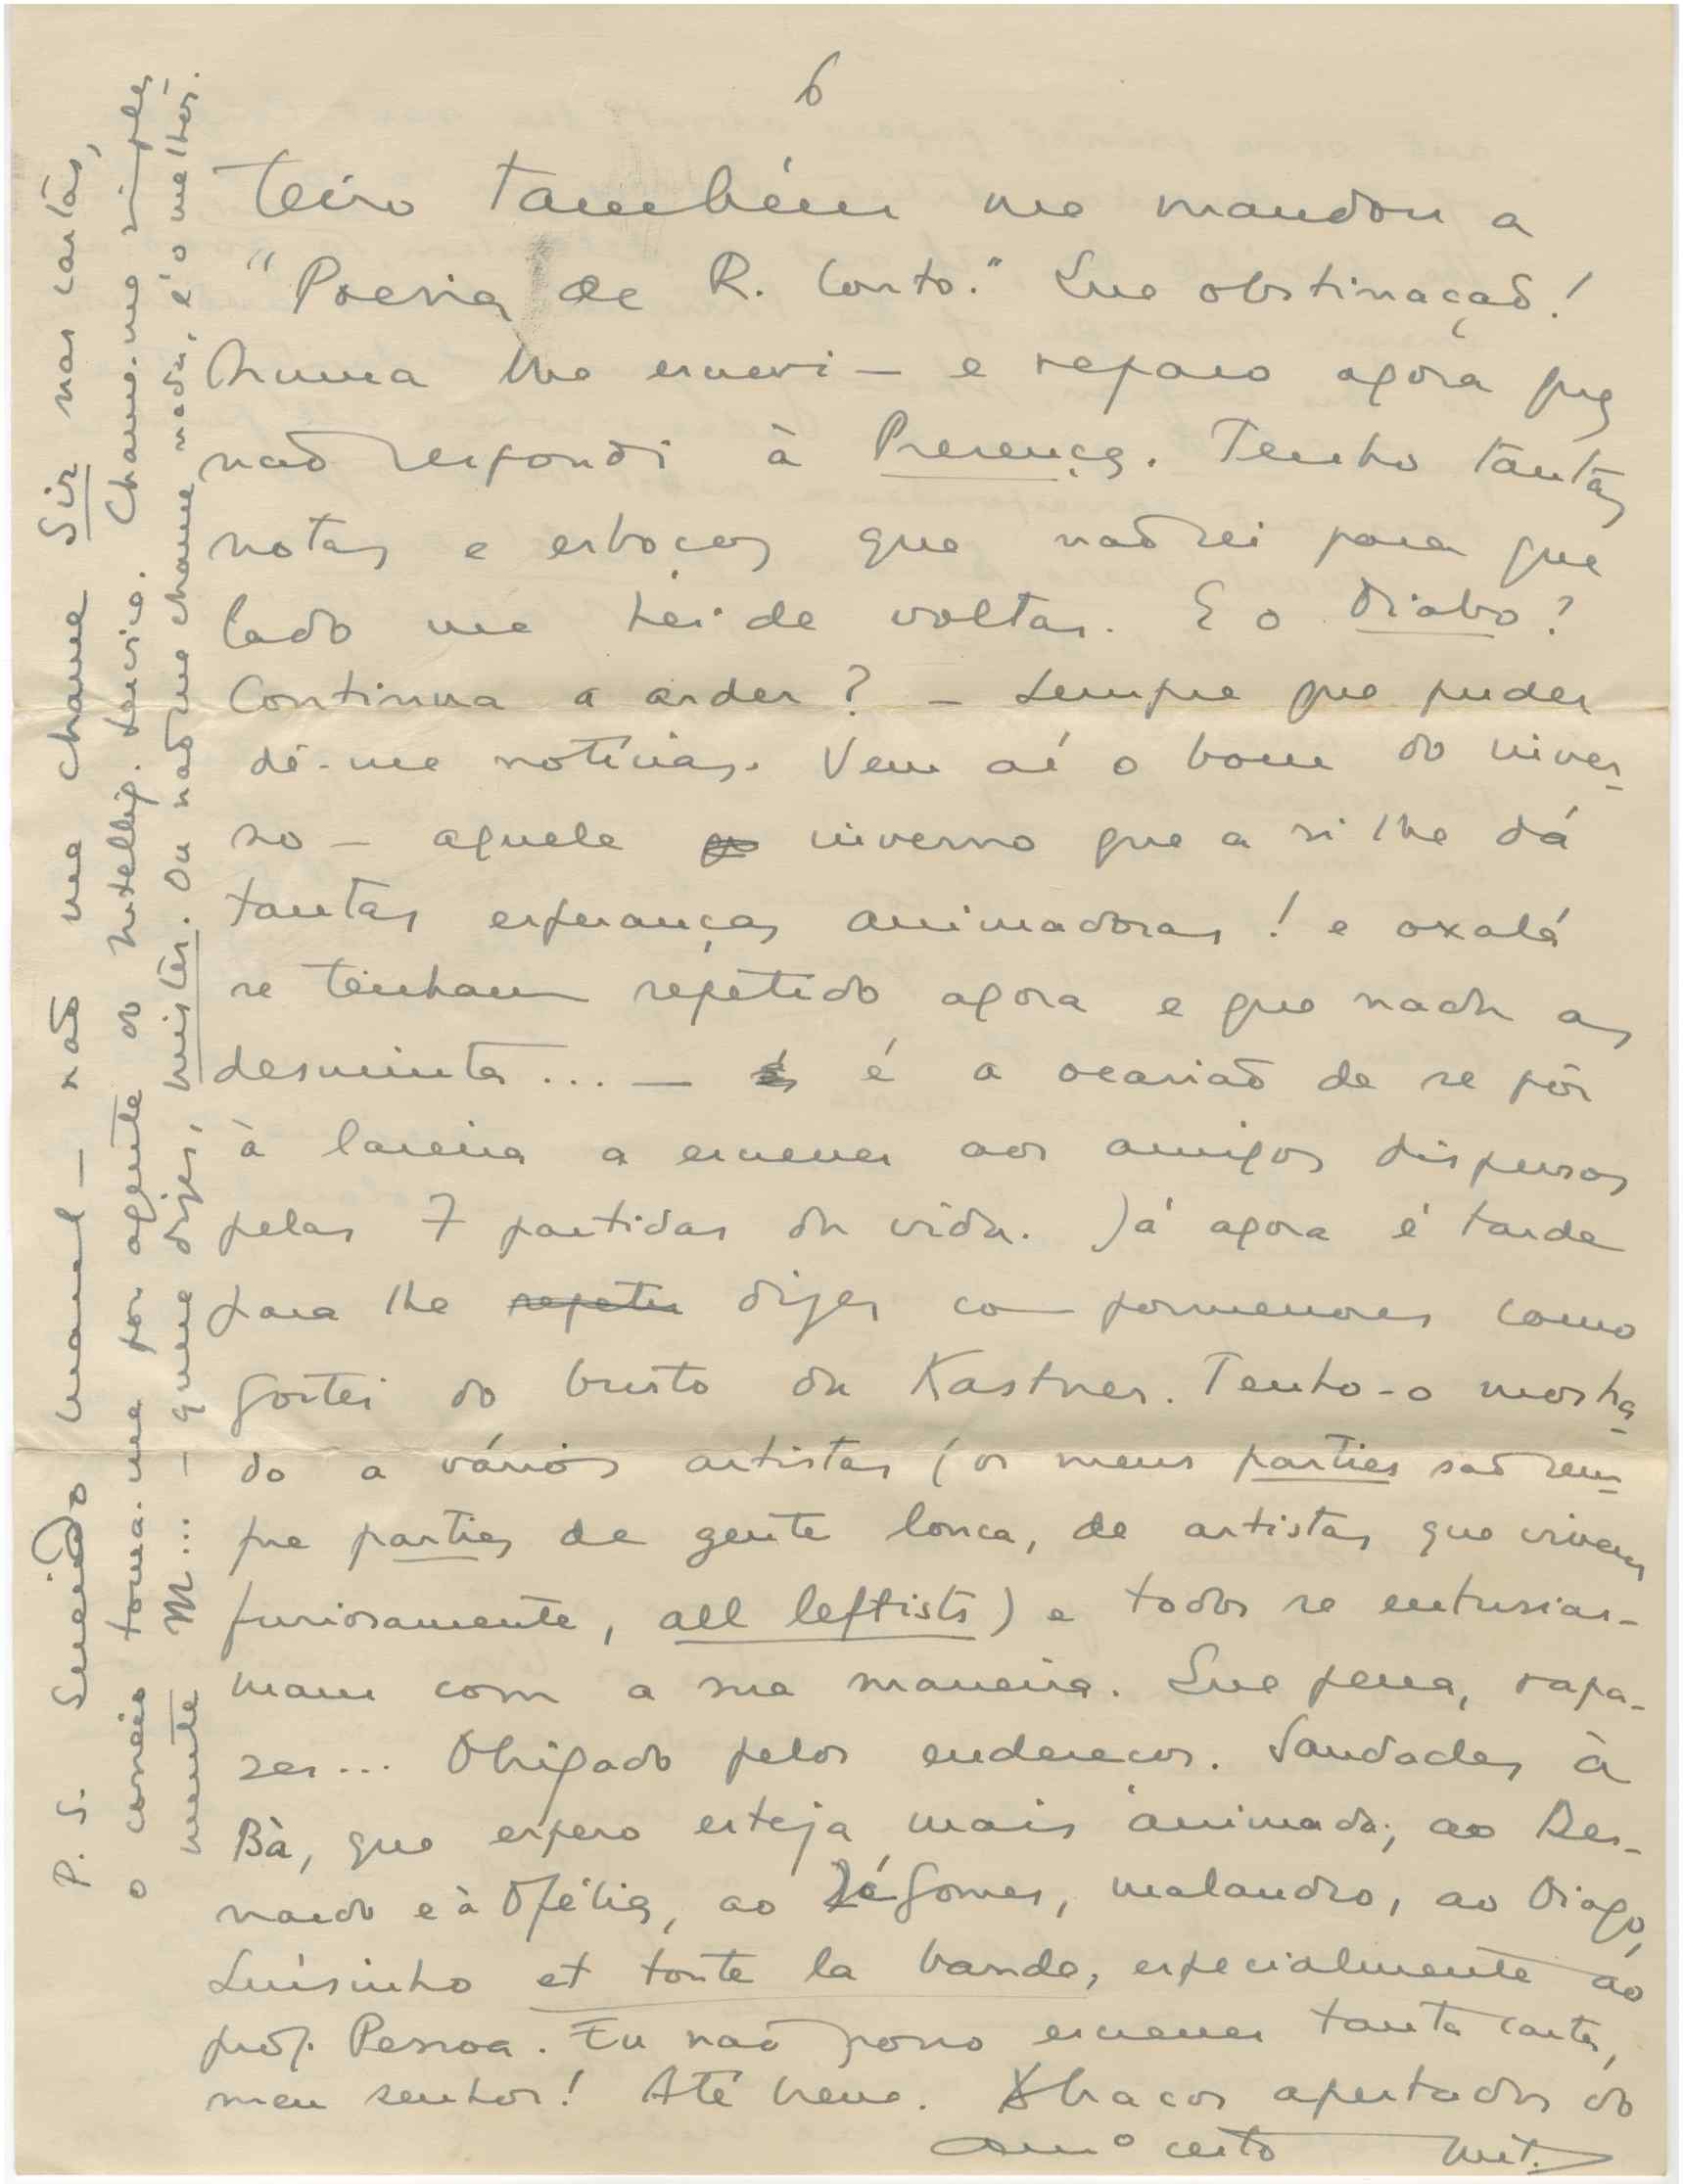 6
teiro também me mandou a
"Poesia de R. Couto." Que obstinação!
Nunca lhe escrevi – e reparo agora que
não respondi à Presença. Tenho tantas
notas e esboços que não sei para que
lado me hei-de voltar. E o Diabo?
Continua a arder? – Sempre que puder
dê-me notícias. Vem aí o bom do inver-
no – aquele inverno que a si lhe dá
tantas esperanças animadoras! e oxalá
se tenham repetido agora e que nada as
desminta... – é a ocasião de se pôr
à lareira a escrever aos amigos dispersos
pelas 7 partidas da vida. Já agora é tarde
para lhe repetir dizer com pormenores como
gostei do busto da Kastner. Tenho-o mostra-
do a vários artistas (os meus parties são sem-
pre parties de gente louca, de artistas que vivem
furiosamente, all leftists) e todos se entusias-
mam com a sua maneira. Que pena, rapa-
zes... Obrigado pelos endereços. Saudades à
Bà, que espero esteja mais animada; ao Ber-
nardo e à Ofélia, ao Zé Gomes, malandro, ao Diogo,
Luísinho et toute la bande, especialmente ao
prof. Pessoa. Eu não posso escrever tanta carta,
meu senhor! Até breve. Abraços apertados do
amº certo Mit.
P. S. Querido Manuel – não me chame Sir nas cartas,
o correio toma-me por agente do Intellig. Service. Chame-me simples
mente M... – quero dizer, mister. Ou não me chame nada, é o melhor.